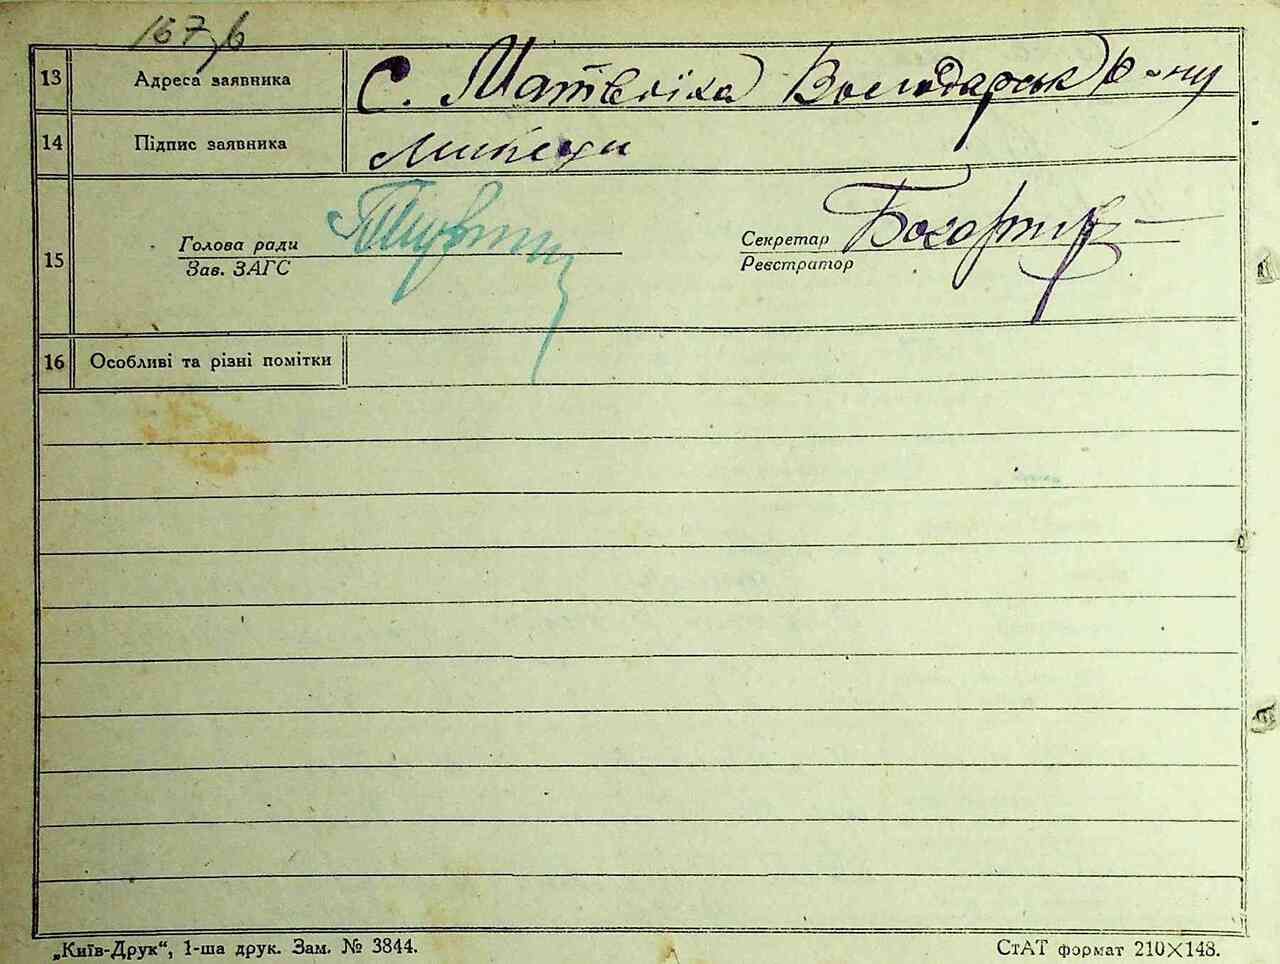 13 Адреса заявника С. Матвіїха Володарськ р-ну
14 Підпис заявника
15 Голова ради Секретар
Зав. ЗАГС Реєстратор
16 Особливі та різні помітки
„Київ-Друк“, 1-ша друк. Зам. № 3844. СтАТ формат 210×148.